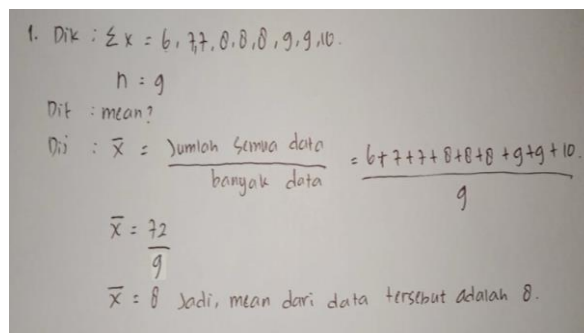 1. Dik : Σx = 6, 7,7, 8, 8, 8, 9, 9, 10.
n = 9
Dit : mean?
Dij : x̄ = Jumlah semua data / banyak data = 6+7+7+8+8+8+9+9+10. / 9
x̄ = 72 / 9
x̄ = 8 Jadi, mean dari data tersebut adalah 8.